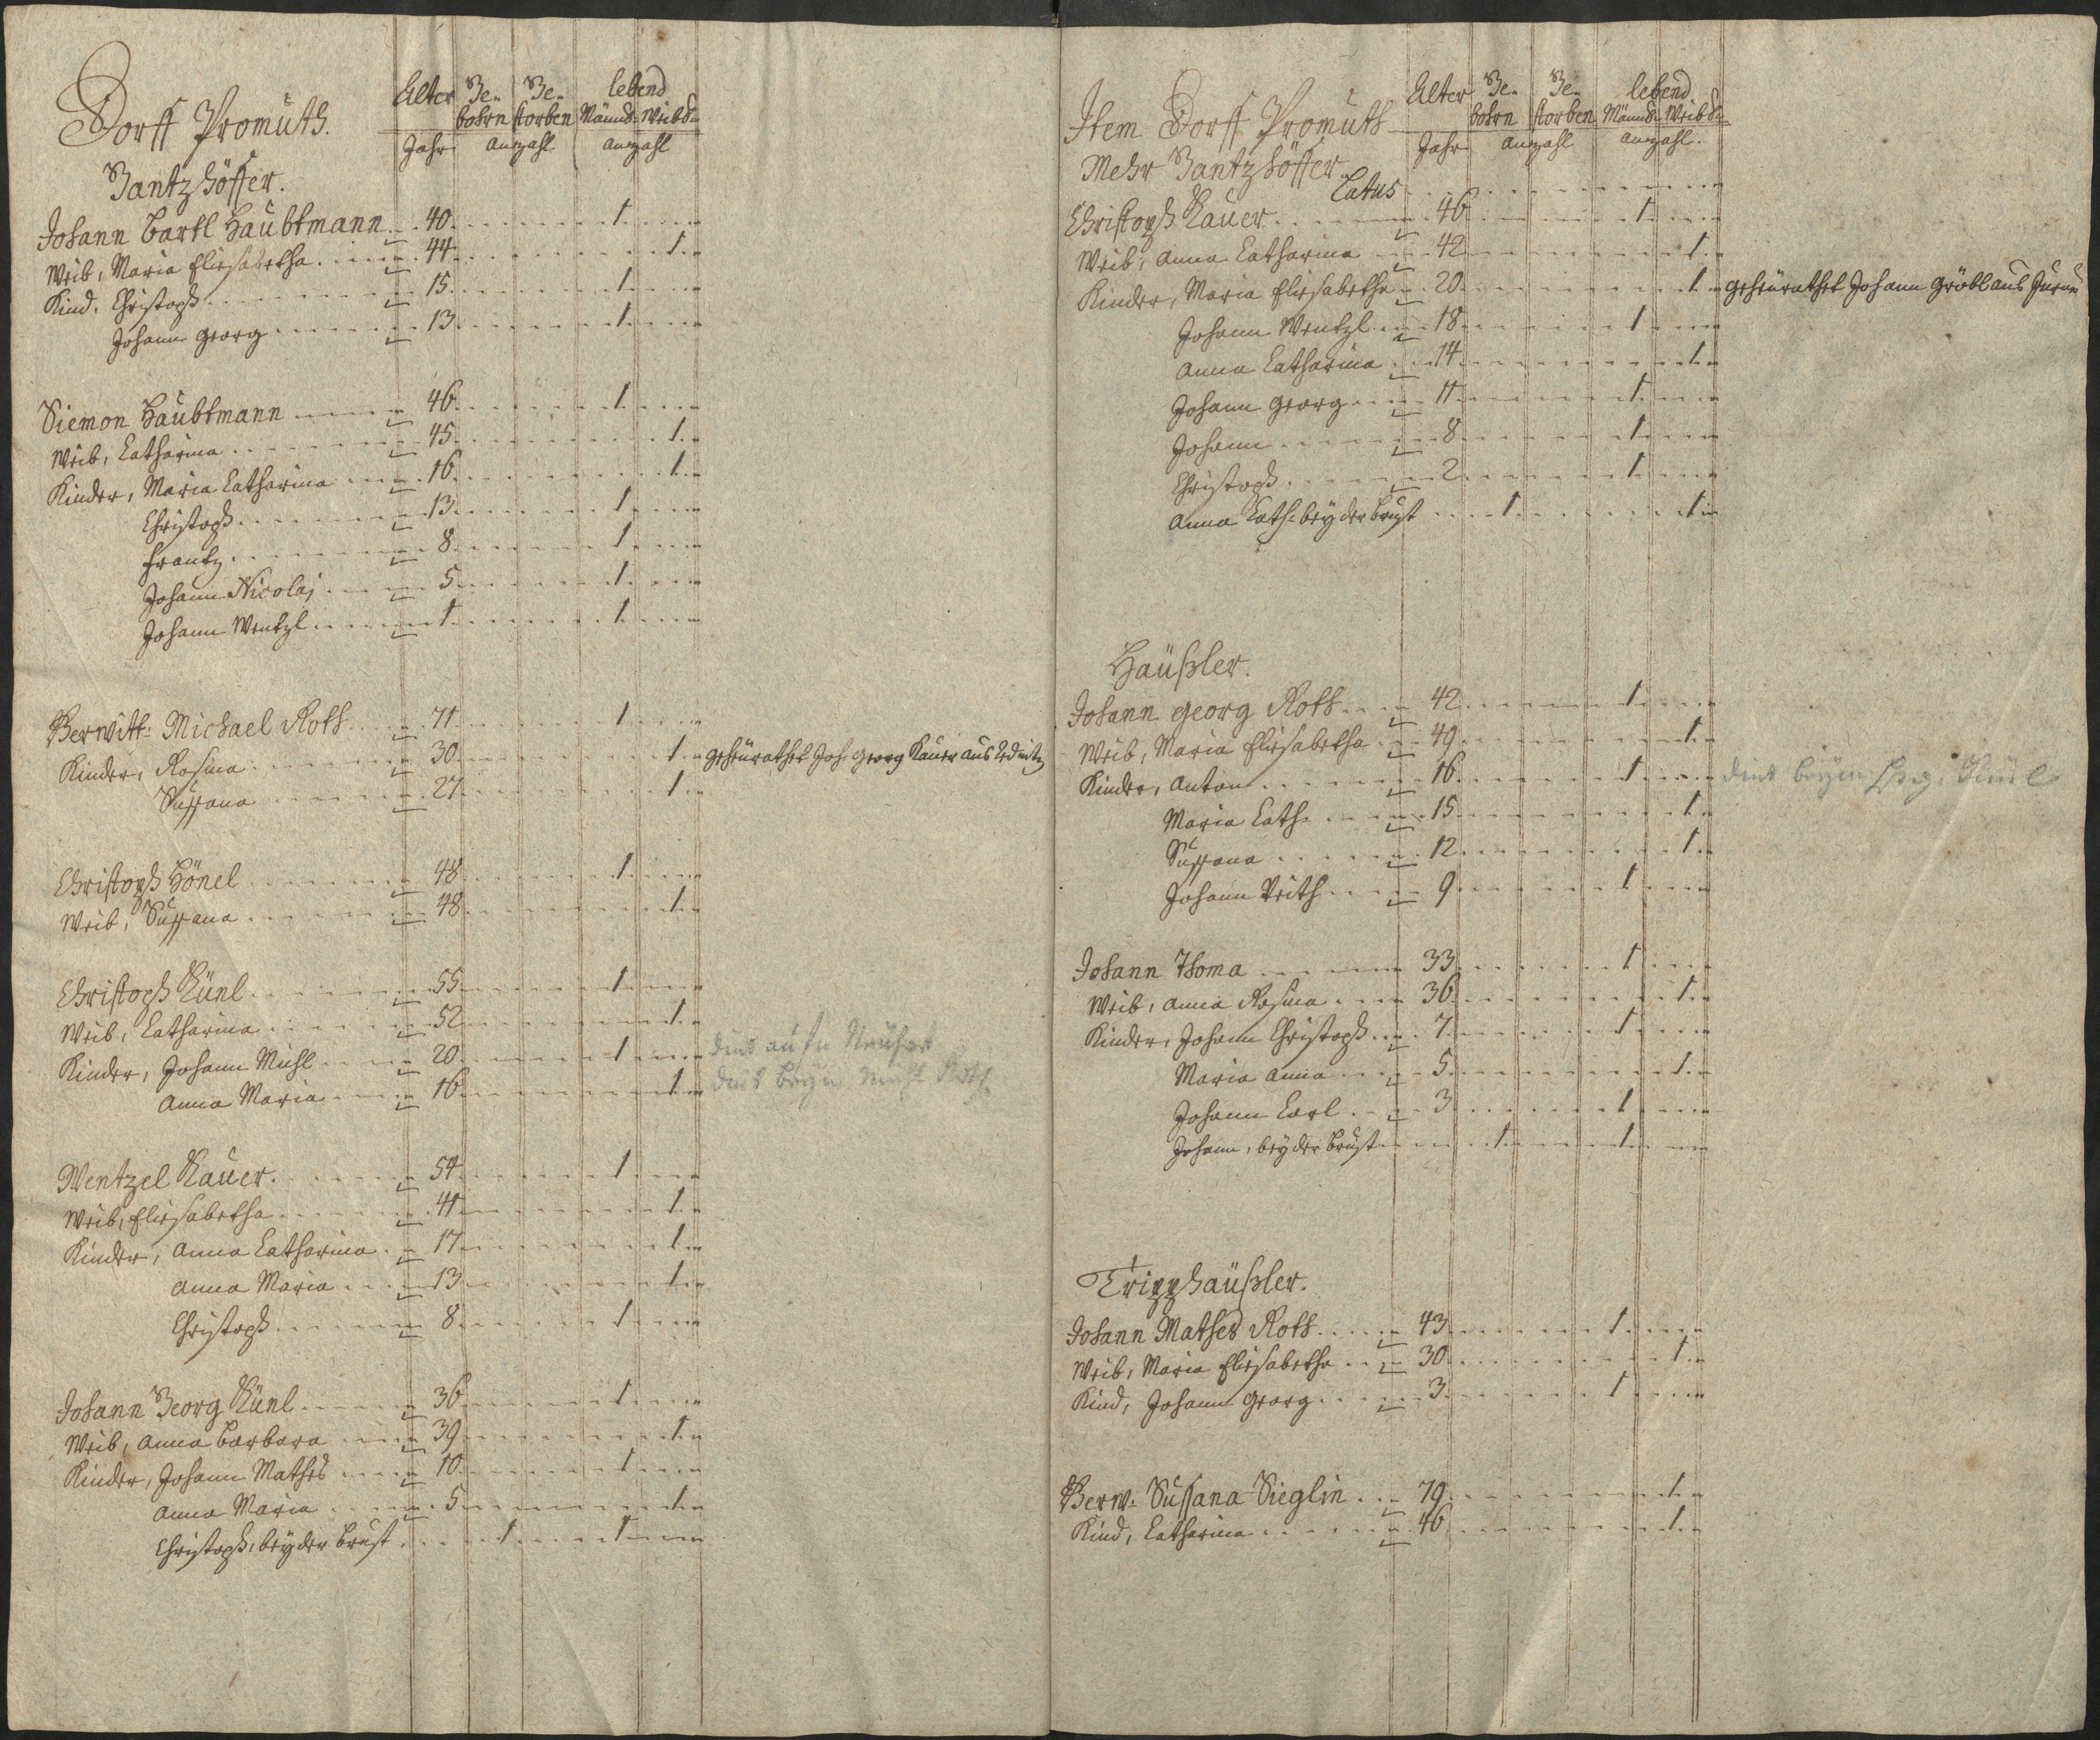 Dorff Promuth.
Alter Ge- Ge- lebend
bohrn storben Männd: Weibd:
Jahr anzahl anzahl
Gantzhöffer.
Johann Bartl Haubtmann 40 1
Weib, Maria Elisabetha 44 1
Kind. Christoph 15 1
Johann Georg 13 1
Siemon Haubtmann 46 1
Weib, Catharina 45 1
Kinder, Maria Catharina 16 1
Christoph 13 1
Frantz 8 1
Johann Nicolaj 5 1
Johann Wentzl 1 1
Verwitt: Michael Roth 71 1
Kinder, Rosina 30 1 geheürathet Joh. Georg Kauer aus
Sussana 27 1
Christoph Hönel 48 1
Weib, Sussana 48 1
Christoph Künl 55 1
Weib, Catharina 52 1
Kinder, Johann Michl 20 1
Anna Maria 16 1
Wentzel Kauer 54 1
Weib, Elisabetha 41 1
Kinder, Anna Catharina 17 1
Anna Maria 13 1
Christoph 8 1
Johann Georg Künl 36 1
Weib, Anna Barbara 39 1
Kinder, Johann Mathes 10 1
Anna Maria 5 1
Christoph, beÿ der Brust 1 1
Item Dorff Promuth
Alter Ge- Ge- lebend
bohrn storben Männd: Weibd:
Jahr anzahl anzahl.
Mehr Gantzhöffer
Latus
Christoph Kauer 46 1
Weib, Anna Catharina 42 1
Kinder, Maria Elisabetha 20 1 geheürathet Johann Gröbl aus
Johann Wentzl 18 1
Anna Catharina 14 1
Johann Georg 11 1
Johann 8 1
Christoph 2 1
Anna Cath: beÿ der Brust 1 1
Häußler.
Johann Georg Roth 42 1
Weib, Maria Elisabetha 49 1
Kinder, Anton 16 1
Maria Cath: 15 1
Sussana 12 1
Johann Veith 9 1
Johann Thoma 33 1
Weib, Anna Rosina 36 1
Kinder, Johann Christoph 7 1
Maria Anna 5 1
Johann Carl 3 1
Johann, beÿ der Brust 1 1
Tripphäußler.
Johann Mathes Roth 43 1
Weib, Maria Elisabetha 30 1
Kind, Johann Georg 3 1
Verw: Sussana Sieglin 79 1
Kind, Catharina 46 1